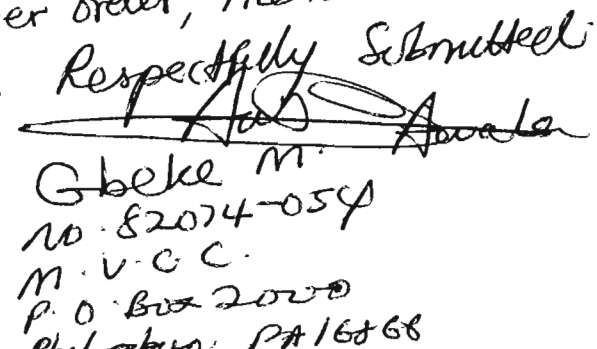 er order,
Respectfully Submitted:
Gbeke M.
NO. 82074-054
M.V.C.C.
P.O. Box 2000
PA 16866